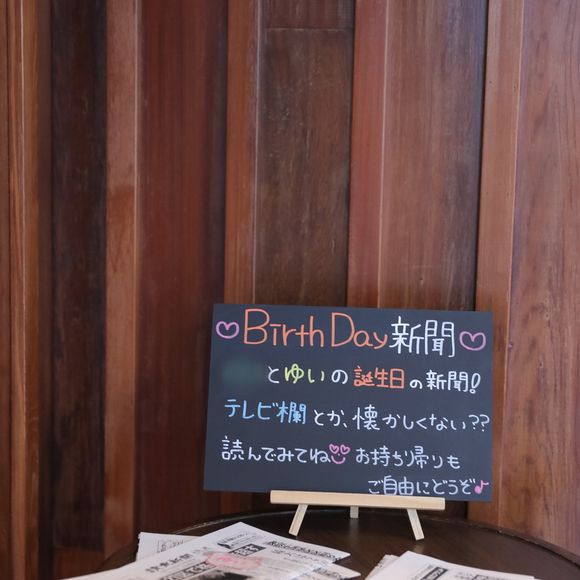 ♡BirthDay新聞♡
とゆいの誕生日の新聞!
テレビ欄とか、懐かしくない??
読んでみてね お持ち帰りも
ご自由にどうぞ♪